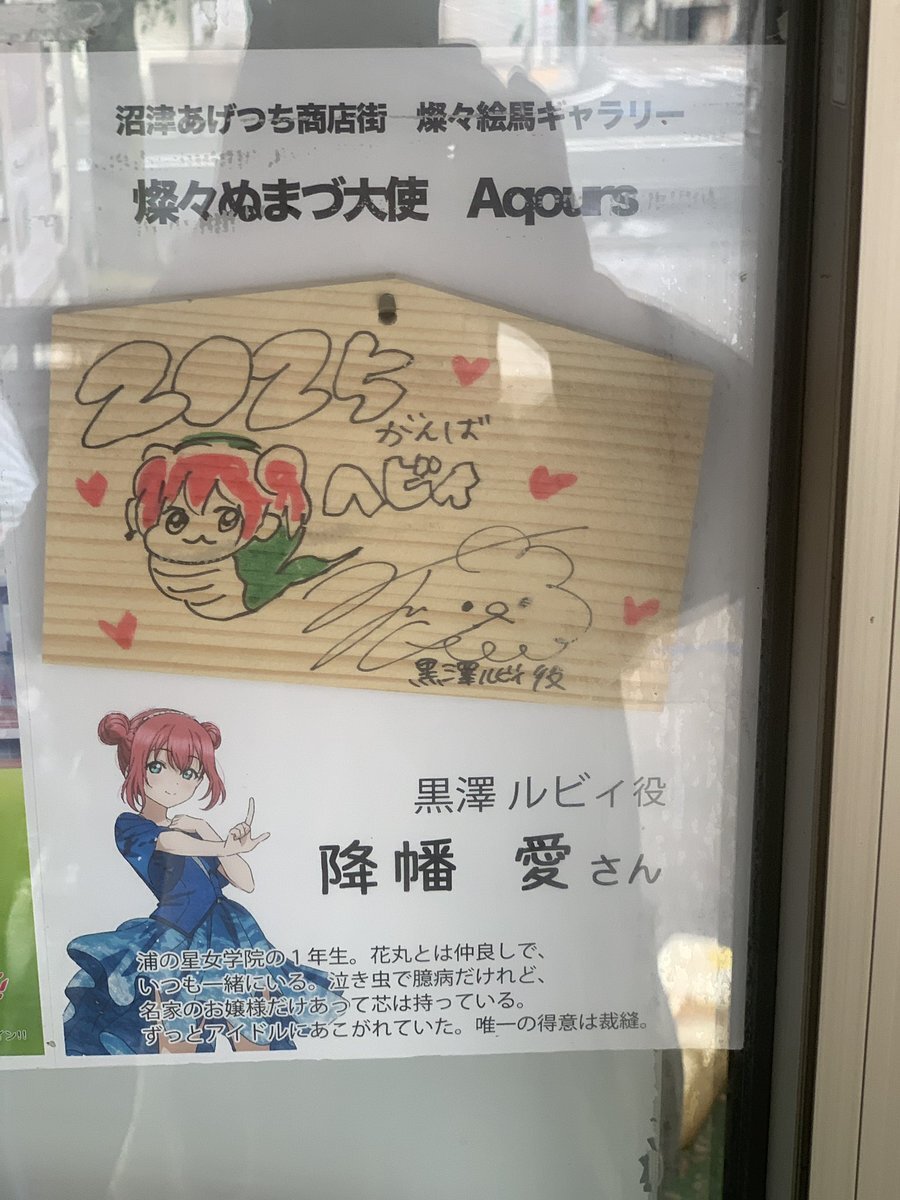 沼津あげつち商店街 燦々絵馬ギャラリー
燦々ぬまづ大使 Aqours
2025
がんば
ヘビィ
黒澤ルビィ役
黒澤 ルビィ役
降幡 愛さん
浦の星女学院の1年生。花丸とは仲良しで、
いつも一緒にいる。泣き虫で臆病だけれど、
名家のお嬢様だけあって芯は持っている。
ずっとアイドルにあこがれていた。唯一の得意は裁縫。
イン!!